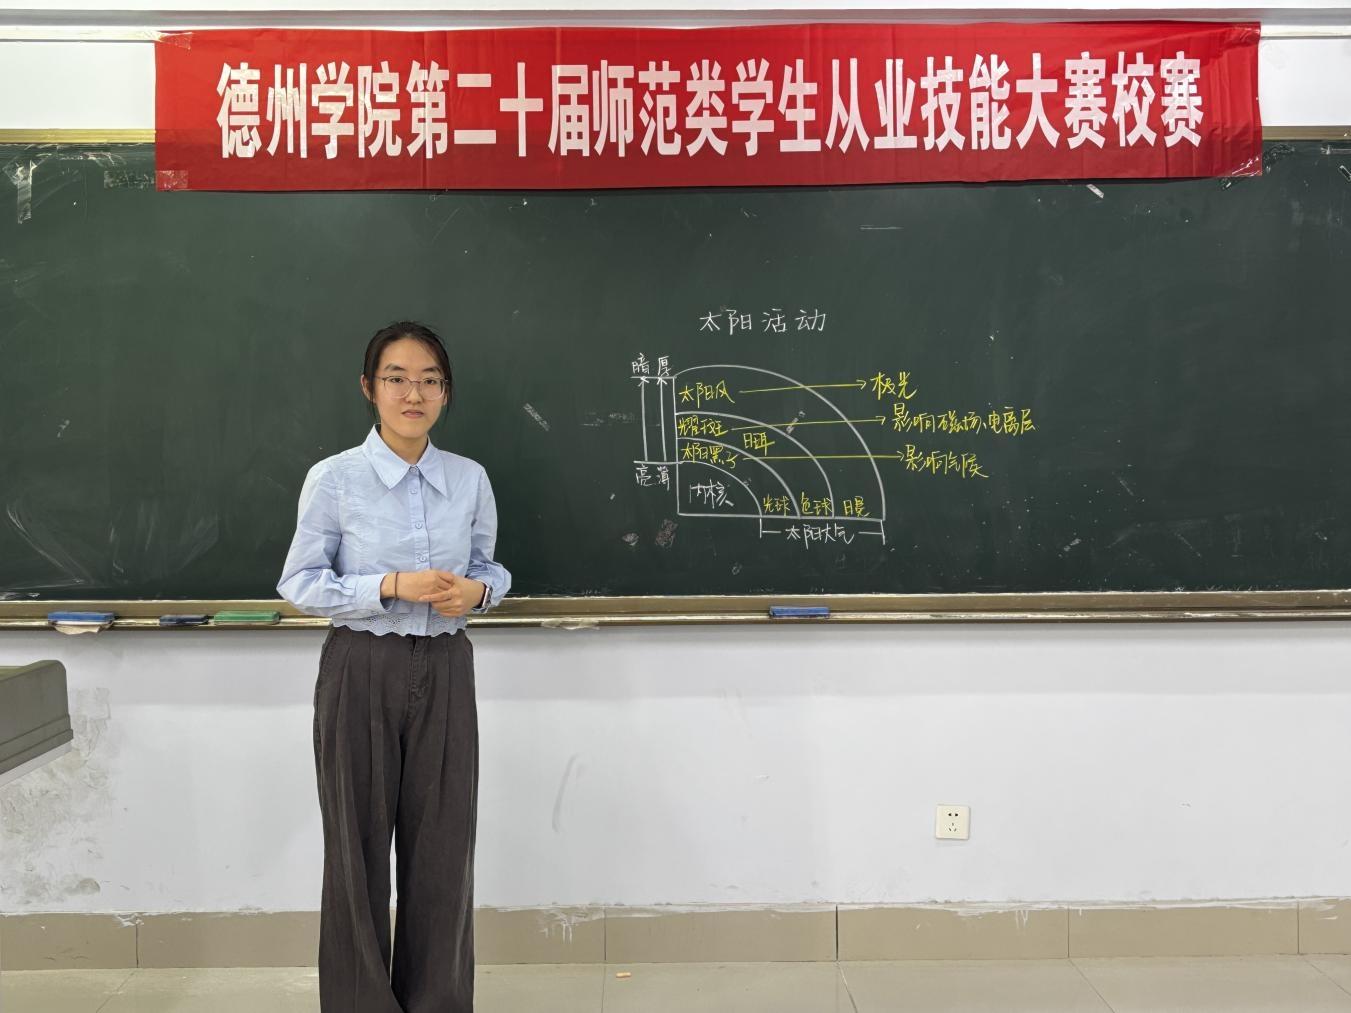 德州学院第二十届师范类学生从业技能大赛校赛
太阳活动
暗 厚
太阳风 极光
耀斑 日珥 影响磁场、电离层
太阳黑子 影响气候
亮 薄
内核 光球 色球 日冕
太阳大气